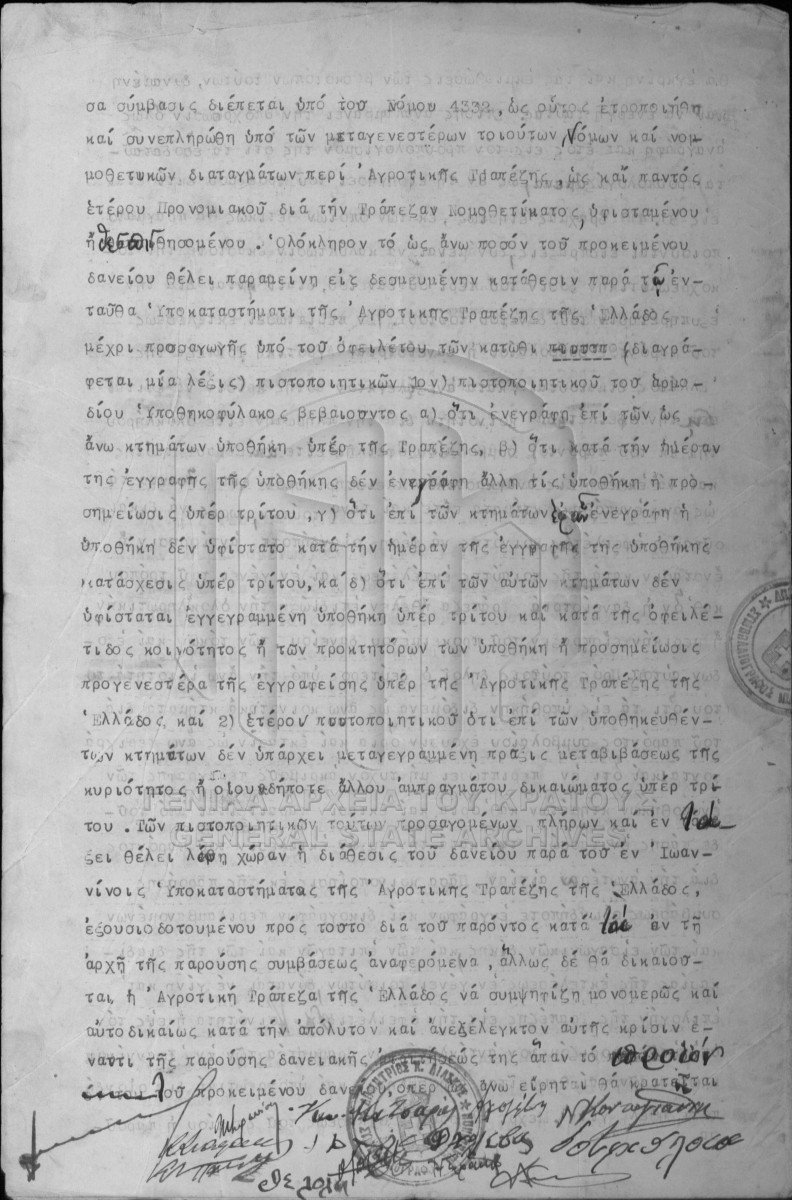 σα σύμβασις διέπεται ὑπό τοῦ Νόμου 4332, ὡς οὗτος ἐτροποιήθη
καί συνεπληρώθη ὑπό τῶν μεταγενεστέρων τοιούτων Νόμων καί νομ-
μοθετικῶν διαταγμάτων περί Ἀγροτικῆς Τραπέζης, ὡς καί παντός
ἑτέρου Προνομιακοῦ διά τήν Τράπεζαν Νομοθετήματος, ὑφισταμένου
ἤ θεσπισθησομένου. Ὁλόκληρον τό ὡς ἄνω ποσόν τοῦ προκειμένου
δανείου θέλει παραμείνῃ εἰς δεσμευμένην κατάθεσιν παρά τῷ ἐν-
ταῦθα Ὑποκαταστήματι τῆς Ἀγροτικῆς Τραπέζης τῆς Ἑλλάδος
μέχρι προσαγωγῆς ὑπό τοῦ ὀφειλέτου τῶν κατωθι πιστπ (διαγρά-
φεται μία λέξις) πιστοποιητικῶν 1ον) πιστοποιητικοῦ τοῦ ἁρμο-
δίου Ὑποθηκοφύλακος βεβαιοῦντος α) ὅτι ἐνεγράφη ἐπί τῶν ὡς
ἄνω κτημάτων ὑποθήκη ὑπέρ τῆς Τραπέζης, β) ὅτι κατά τήν ἡμέραν
τῆς ἐγγραφῆς τῆς ὑποθήκης δέν ἐνεγράφη ἄλλη τίς ὑποθήκη ἤ προ-
σημείωσις ὑπέρ τρίτου, γ) ὅτι ἐπί τῶν κτημάτων ἐφ' ὧν ἐνεγράφη ἡ
ὑποθήκη δέν ὑφίστατο κατά τήν ἡμέραν τῆς ἐγγραφῆς τῆς ὑποθήκης
κατάσχεσις ὑπέρ τρίτου, καί δ) ὅτι ἐπί τῶν αὐτῶν κτημάτων δέν
ὑφίσταται ἐγγεγραμμένη ὑποθήκη ὑπέρ τρίτου καί κατά τῆς ὀφειλέ-
τιδος κοινότητος ἤ τῶν προκτητόρων των ὑποθήκη ἤ προσημείωσις
προγενεστέρα τῆς ἐγγραφείσης ὑπέρ τῆς Ἀγροτικῆς Τραπέζης τῆς
Ἑλλάδος, καί 2) ἑτέρου πιστοποιητικοῦ ὅτι ἐπί τῶν ὑποθηκευθέν-
των κτημάτων δέν ὑπάρχει μεταγεγραμμένη πρᾶξις μεταβιβάσεως τῆς
κυριότητος ἤ οἱουδήποτε ἄλλου ἐμπραγμάτου δικαιώματος ὑπέρ τρί
του. Τῶν πιστοποιητικῶν τούτων προσαγομένων πλήρων καί ἐν τά-
ξει θέλει λάβῃ χώραν ἡ διάθεσις τοῦ δανείου παρά τοῦ ἐν Ἰωαν-
νίνοις Ὑποκαταστήματος τῆς Ἀγροτικῆς Τραπέζης τῆς Ἑλλάδος,
ἐξουσιοδοτουμένου πρός τοῦτο διά τοῦ παρόντος κατά τά ἐν τῇ
ἀρχῇ τῆς παρούσης συμβάσεως ἀναφερόμενα, ἄλλως δέ θά δικαιοῦ-
ται ἡ Ἀγροτική Τράπεζα τῆς Ἑλλάδος νά συμψηφίζῃ μονομερῶς καί
αὐτοδικαίως κατά τήν ἀπόλυτον καί ἀνεξέλεγκτον αὐτῆς κρίσιν ἔ-
ναντι τῆς παρούσης δανειακῆς ἀπαιτήσεώς της ἅπαν τό προϊόν
τοῦ προκειμένου δανείου, ὅπερ ὡς ἄνω εἴρηται θά κρατῆται
ΓΕΝΙΚΑ ΑΡΧΕΙΑ ΤΟΥ ΚΡΑΤΟΥΣ
GENERAL STATE ARCHIVES